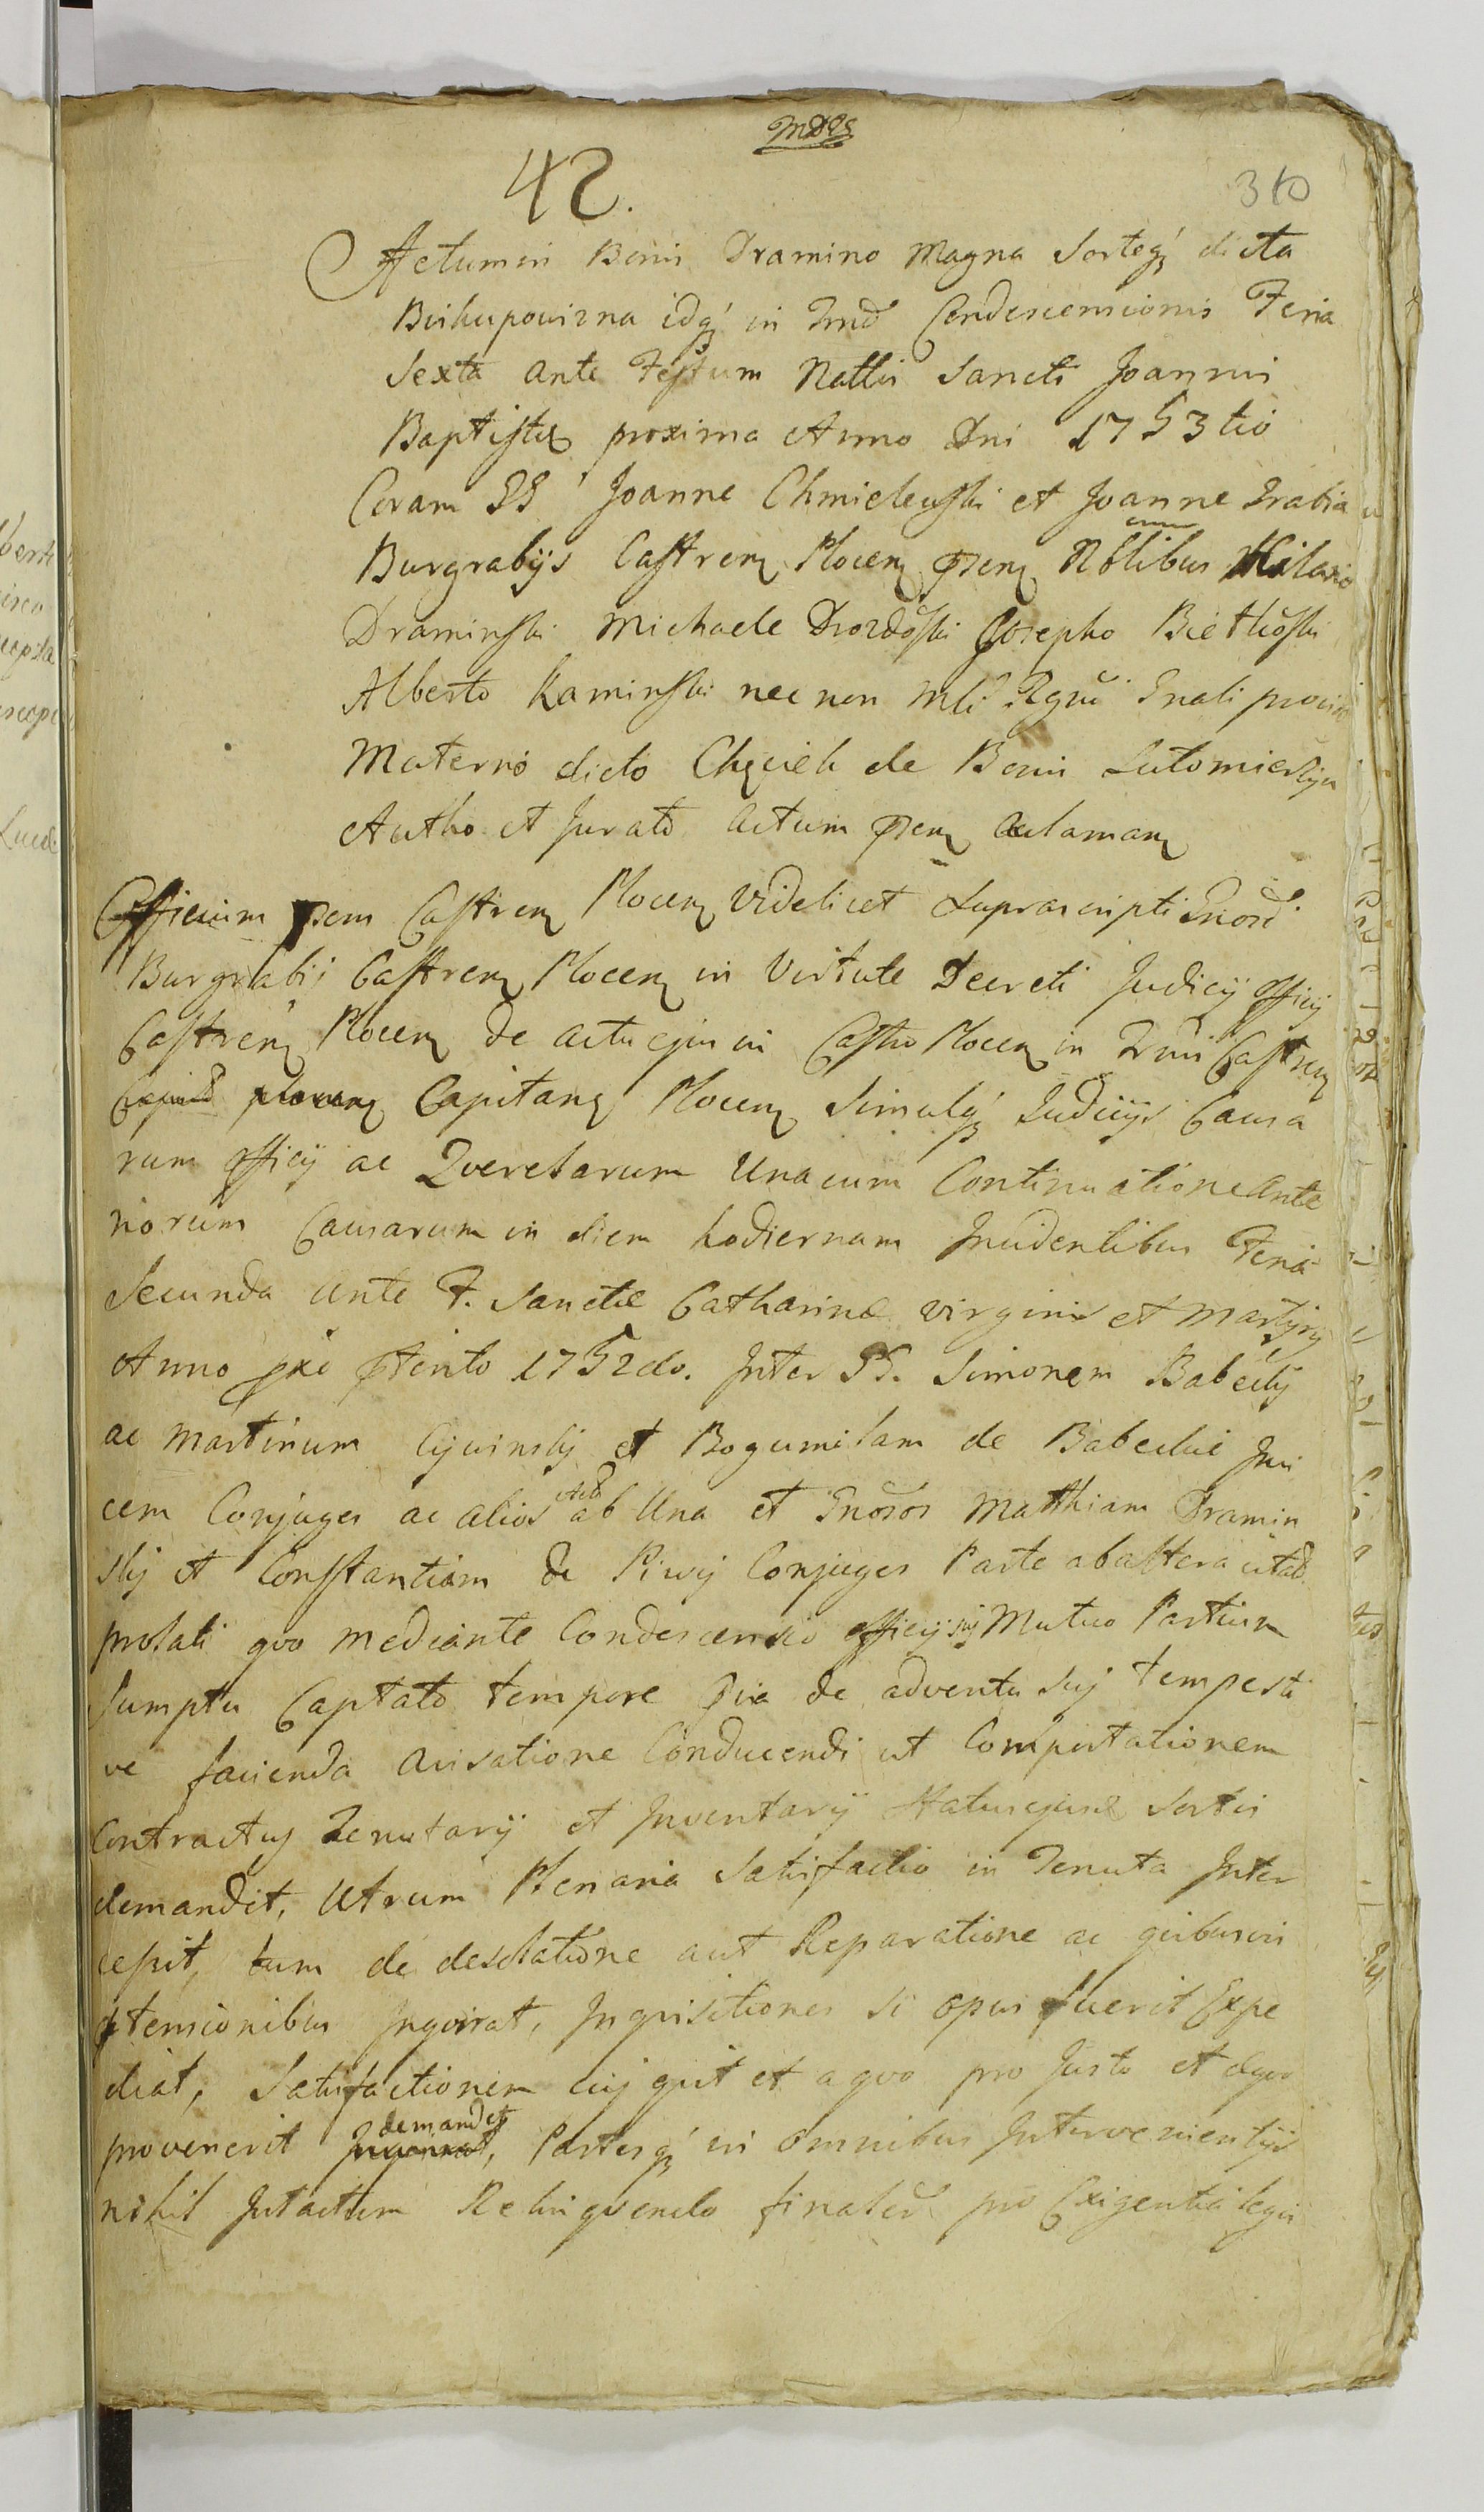 42.
310
Actum in Bonis Dramino Magna Sorteq́ʒ dicta
Biskupowizna idq́ʒ in Tmno Condescensionis Feria
Sexta ante Festum Nattis Sancti Joannis
Baptistæ proxima Anno Dni 1753tio
Coram GG Joanne Chmielewski et Joanne Grabia
Burgrabijs Castren Plocen pŕsen Nobilibus Hilario
Draminski Michaele Drozdoski Josepho Bietkoski
Alberto Kaminski nec non Mli Regni Gnali
Materno dicto Chęciek de Bonis Lutomierzyn
Autho et Jurato actum pŕsen aclaman
Officium pŕsens Castren Plocen Videlicet Suprascripti Gnosi
Burgrabii Castren Plocen in Virtute Decreti Judicij Officij
Castren Plocen de actu ejus in Castro Plocen in Tmnis Castren
Capitan Plocen Simulq́ʒ Judicijs Causa
rum officij ac Querelarum Unacum Continuatione Ante
riorum Causarum in diem hodiernam Incidentibus Feria
Secunda ante F. Sanctæ Catharinæ virginis et Martyris
Anno pŕterito 1752do. Inter GG. Simonem Babecky
ac Martinum Cywinsky et Bogumilam de Babeckie Inv
cem Conjuges ac alios Acto ab Una et Gnosos Matthiam Dramin
sky et Constantiam de Piwy Conjuges Parte ab altera citatos
prolati quo mediante Condescensio officij sui Mutuo Partium
Sumptu Captato tempore Pia de adventu sui tempesti
ve facienda Avisatione Conducendi ut Comportationem
Contractus Tenutarij et Inventarij Status ejusd Sortis
demandet, Utrum Plenaria Satisfactio in Tenuta Inter
cessit, tum de desolatione aut Reparatione ac quibusvis
pŕtensionibus Inquirat, Inquisitiones si opus fuerit Expe
diat, Satisfactionem cuj quit et a quo pro Justo et æquo
provenerit demandet, Partesq́ʒ in omnibus Intervenientijs
nihil Intactum Relinquendo finaliter pro Exigentia legis